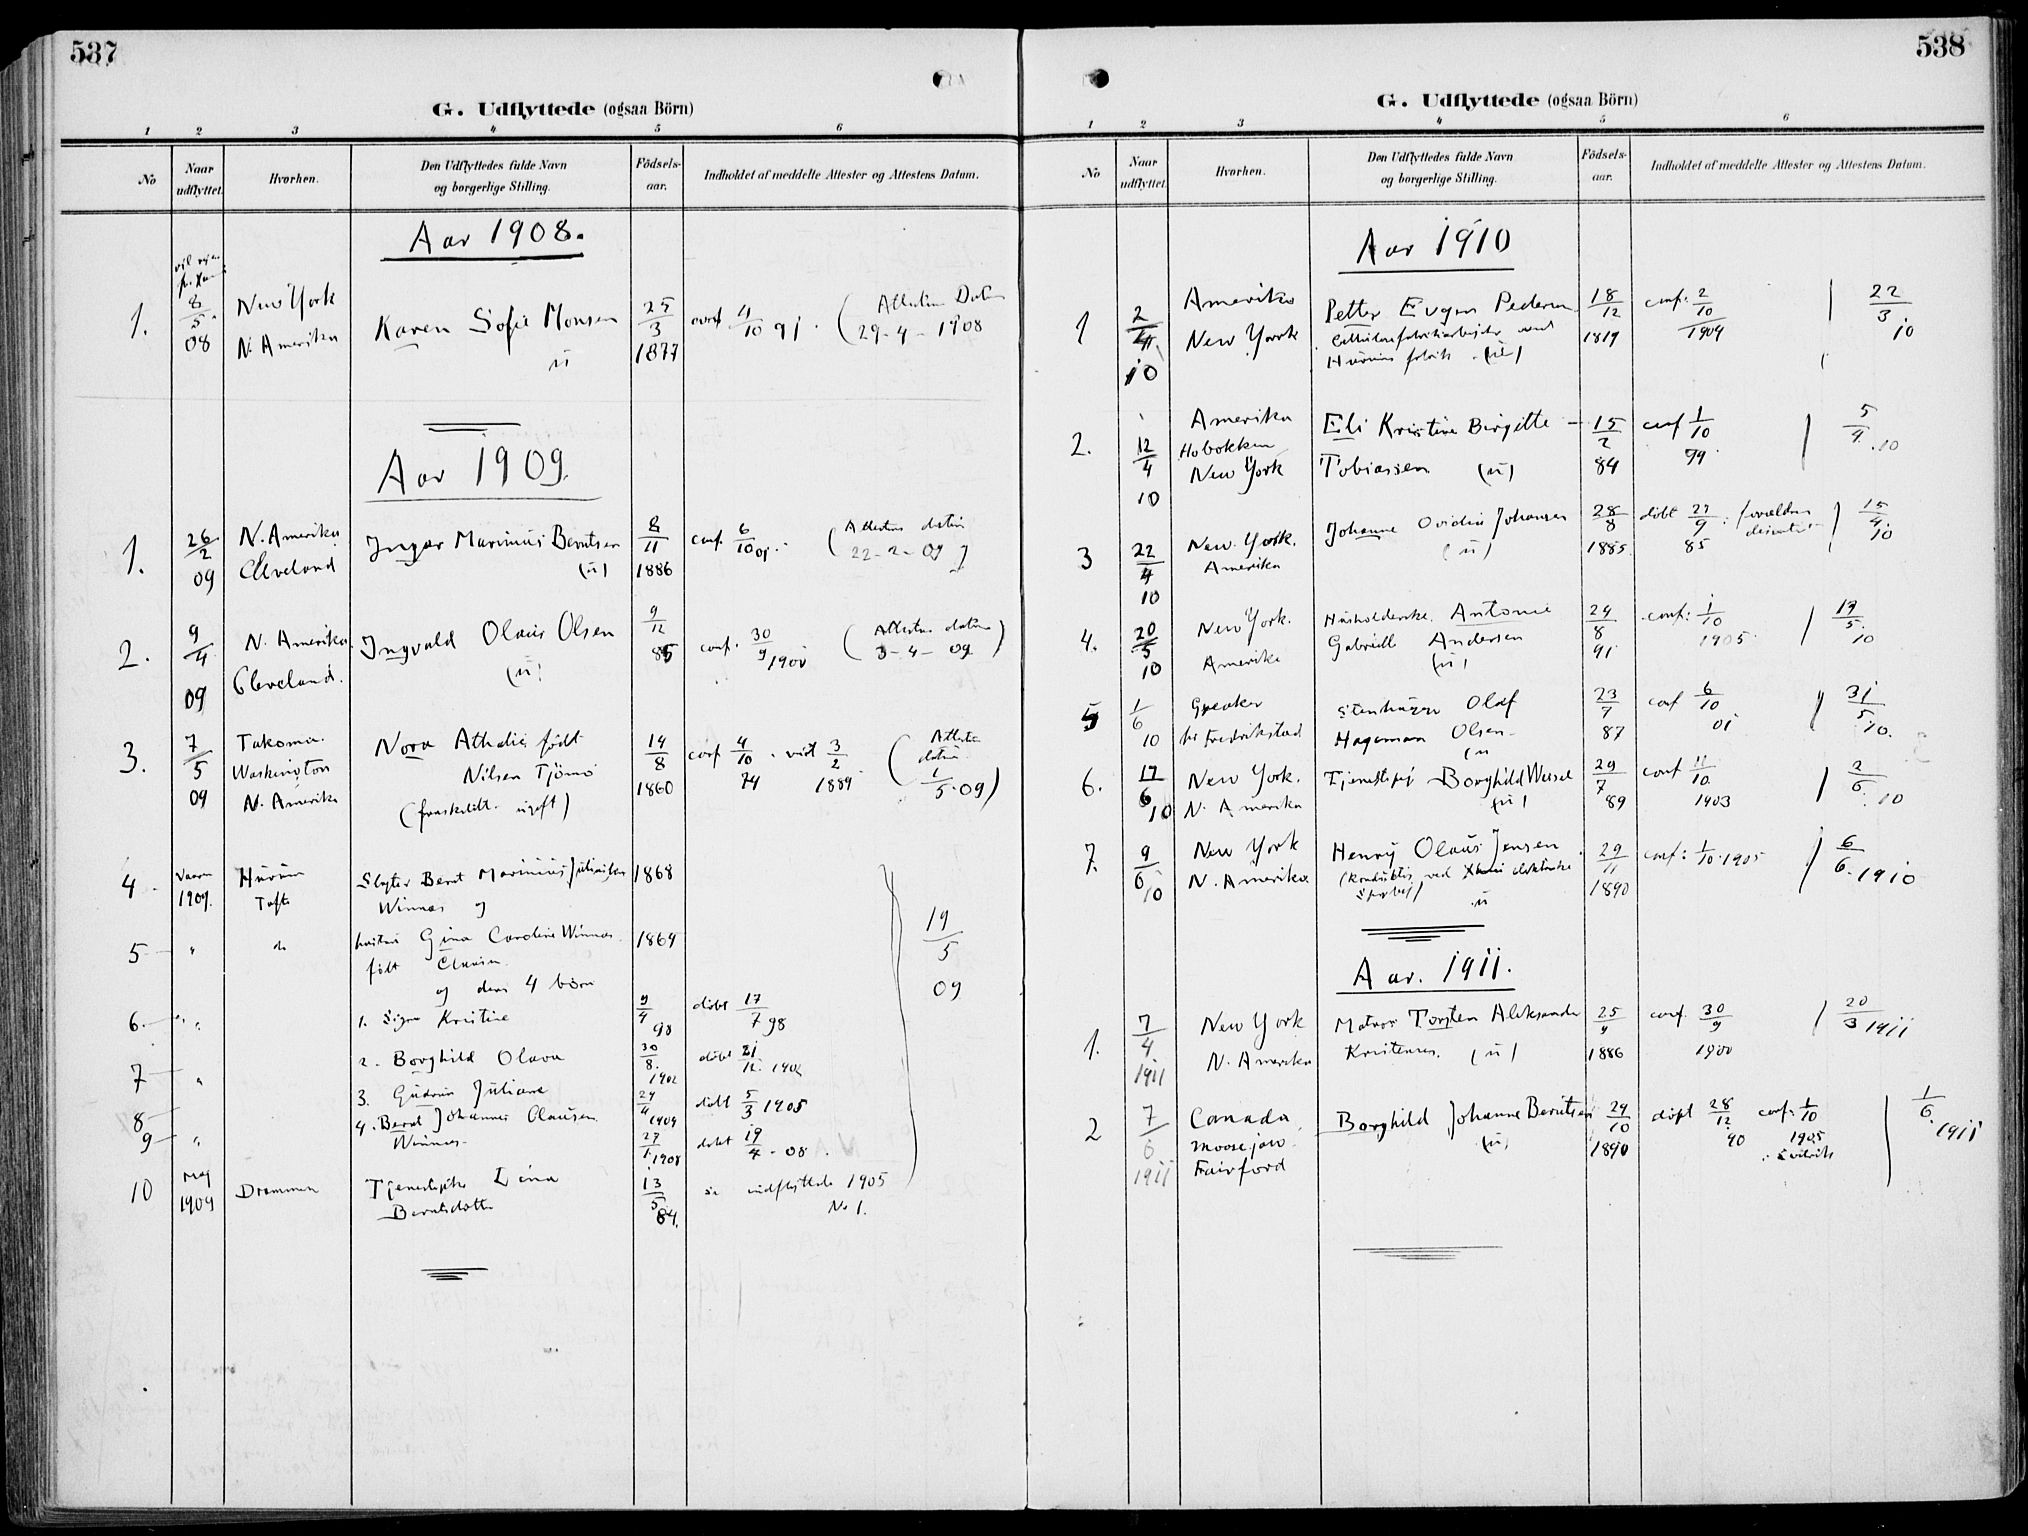 537
G. Udflyttede (ogsaa Börn)
1 2 3 4 5 6
No
Naar udflyttet.
Hvorhen.
Den Udflyttedes fulde Navn og borgerlige Stilling.
Fødsels-aar.
Indholdet af meddelte Attester og Attestens Datum.
Aar 1908.
1. 8/5 08
New York
N. Amerika
Karen Sofie Monsen
ü
25/3 1877
conf 4/10 91. (Attestens Datum
29-4-1908
Aar 1909.
1. 26/2 09
N. Amerika
Cleveland
Ingar Marinius Berntsen
(ü)
8/11 1886
conf. 6/10 01.
(Attestens datum
22-2-09)
2. 9/4 09
N. Amerika
Cleveland.
Ingvald Olaus Olsen
(ü)
9/12 85
conf. 30/9 1900
(Attestens datum
3-4-09)
3. 7/5 09
Takoma.
Washington
N. Amerika
Nora Athalie født
Nilsen Tjömö
(fraskildt. ugift)
14/8 1860
conf 4/10 74 . viet 3/2 1889
(Attestens
datum
1/5.09)
4. Vaaren 1909.
Hurum
Tofte
Slagter Bernt Marinius Juliussen
Winnæs og
1868
5 " do
hustru Gina Caroline Winnæs.
født Clausen.
og deres 4 börn
1869
19/5 09
6. " 1. Signe Kristine
9/4 98
döbt 17/7 98
7 " 2. Borghild Olava
30/8. 1902
döbt 21/12. 1902
8 3. Gudrun Juliane
24/4 1904
döbt 5/3 1905
9 " 4. Bernt Johannes Clausen
Winnæs.
27/1 1908
döbt 19/4 - 08.
10 Maj 1909
Drammen
Tjenestepike Lina
Berntsdatter
13/5 84.
se indflyttede 1905
No 1.
538
G. Udflyttede (ogsaa Börn)
1 2 3 4 5 6
No
Naar udflyttet.
Hvorhen.
Den Udflyttedes fulde Navn og borgerlige Stilling.
Fødsels-aar.
Indholdet af meddelte Attester og Attestens Datum.
Aar 1910
1 2/4 10
Amerika
New York
Petter Eugen Pedersen
Cellulosefabrikarbejder ved
Hurums fabrik. (ü)
18/12 1889
conf: 2/10 1904
22/3 10
2. 12/4 10
Amerika
Hobokken
New York
Eli Kristine Birgitte -
Tobiassen (ü)
15/2 84
conf 1/10 99.
5/4.10
3 22/4 10
New York.
Amerika
Johanne Ovidia Johansen
(ü)
28/8 1885.
döbt 27/9 85: forældre
dissenter
15/4 10
4. 20/5 10
New York.
Amerika
Husholderske. Antonie
Gabrielle Andersen
(ü)
24/8 91
conf: 1/10 1905.
19/5. 10
5 1/6 10
Greaker
pr Fredrikstad
Stenhugger Olaf
Hageman Olsen.
(ü
23/7 87
conf 6/10 01
31/5.10.
6. 17/6 10
New York.
N. Amerika
Tjenestepi Borghild Wessel
(ü)
29/7 89
conf 11/10. 1903
2/6. 10
7. 9/6 10
New York
N. Amerika
Henry Olaus Jensen
(Konduktör ved Xania elektriske
Sporvej)
ü
29/11 1890
conf: 1/10.1905
6/6.1910
Aar. 1911.
1. 7/4 1911
New York
N. Amerika
Matros Torsten Aleksander
Kristensen. (ü)
25/4 1886
conf. 30/9 1900
20/3 1911
2 7/6 1911
Canada,
Moosejaw.
Fairford
Borghild Johanne Berntsen
(ü)
24/10 1890
döpt 28/12 90 conf: 1/10 1905
i Svelvik
1/6. 1911